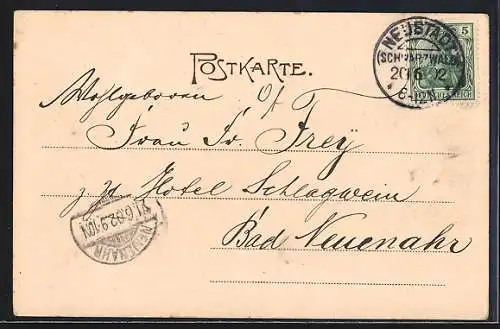 POSTKARTE.
NEUSTADT
(SCHWARZWALD)
20 6 02
6-12N
5
Wohlgeboren
Frau Dr. Frey
z. Zt. Hotel Schlagwein
Bad Neuenahr
NEUENAHR
21.6.02.9-10V